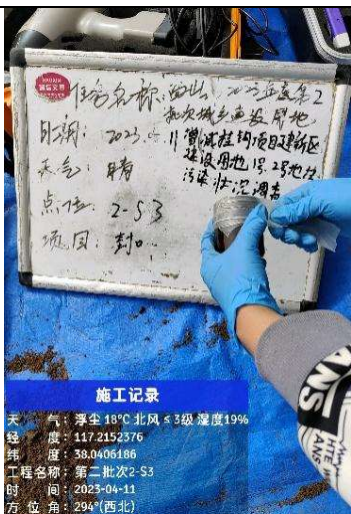 任务名称: 2023年度第2
批次城乡建设用地
日期: 2023.4.11
挂钩项目建新区
天气: 晴
建设用地1号、2号地块
污染状况调查
点位: 2-S3
项目: 封口
施工记录
天 气: 浮尘 18℃ 北风 ≤ 3级 湿度19%
经 度: 117.2152376
纬 度: 38.0406186
工程名称: 第二批次2-S3
时 间: 2023-04-11
方 位 角: 294°(西北)
ANS
HTE
ANS